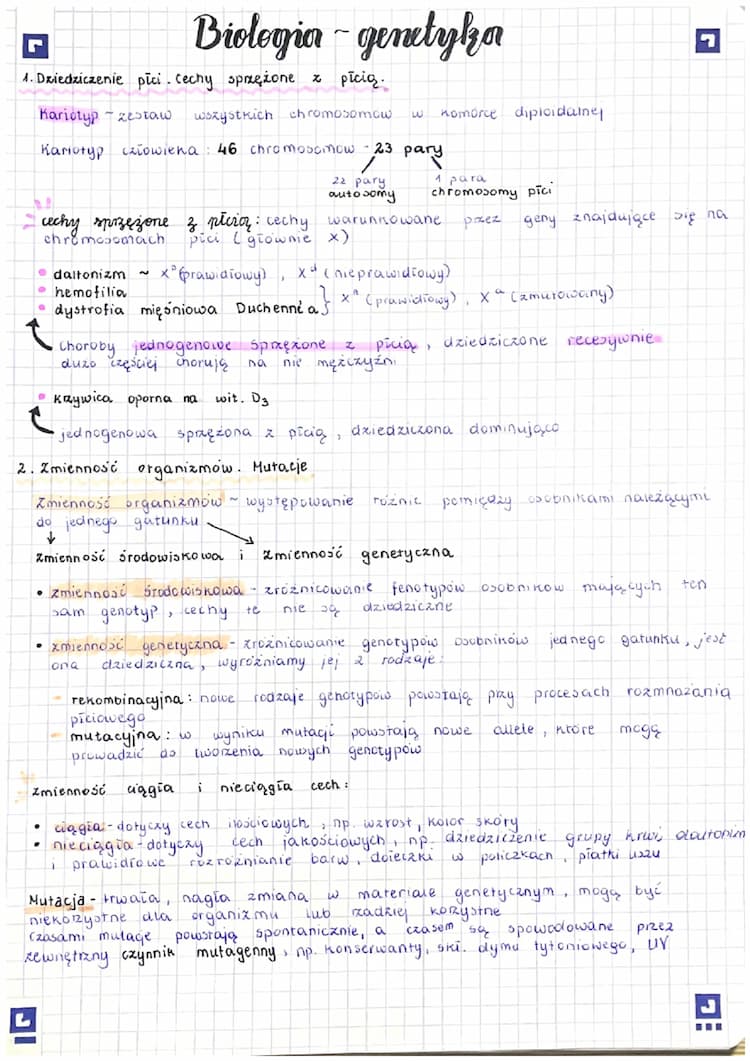 Biologia ~ genetyka
1. Dziedziczenie płci. Cechy sprzężone z płcią.
Kariotyp ~ zestaw wszystkich chromosomów w komórce diploidalnej
Kariotyp człowieka : 46 chromosomów - 23 pary
22 pary autosomy
1 para chromosomy płci
cechy sprzężone z płcią: cechy warunkowane przez geny znajdujące się na
chromosomach płci (głównie X)
• daltonizm ~ Xᴰ (prawidłowy) , Xᵈ (nieprawidłowy)
• hemofilia
• dystrofia mięśniowa Duchenne'a } Xᴬ (prawidłowy) , Xᵃ (zmutowany)
choroby jednogenowe sprzężone z płcią , dziedziczone recesywnie
dużo częściej chorują na nie mężczyźni
• krzywica oporna na wit. D3
jednogenowa sprzężona z płcią , dziedziczona dominująco
2. Zmienność organizmów. Mutacje
Zmienność organizmów ~ występowanie różnic pomiędzy osobnikami należącymi
do jednego gatunku
zmienność środowiskowa i zmienność genetyczna
• zmienność środowiskowa - zróżnicowanie fenotypów osobników mających ten
sam genotyp , cechy te nie są dziedziczne
• zmienność genetyczna - zróżnicowanie genotypów osobników jednego gatunku , jest
ona dziedziczna , wyróżniamy jej 2 rodzaje:
- rekombinacyjna : nowe rodzaje genotypów powstają przy procesach rozmnażania
płciowego
- mutacyjna : w wyniku mutacji powstają nowe allele , które mogą
prowadzić do tworzenia nowych genotypów
zmienność ciągła i nieciągła cech :
• ciągła - dotyczy cech ilościowych , np. wzrost , kolor skóry
• nieciągła - dotyczy cech jakościowych , np. dziedziczenie grupy krwi, daltonizm
i prawidłowe rozróżnianie barw , dołeczki w policzkach , płatki uszu
Mutacja - trwała , nagła zmiana w materiale genetycznym , mogą być
niekorzystne dla organizmu lub rzadziej korzystne
Czasami mutacje powstają spontanicznie, a czasem są spowodowane przez
zewnętrzny czynnik mutagenny , np. konserwanty, skł. dymu tytoniowego, UV